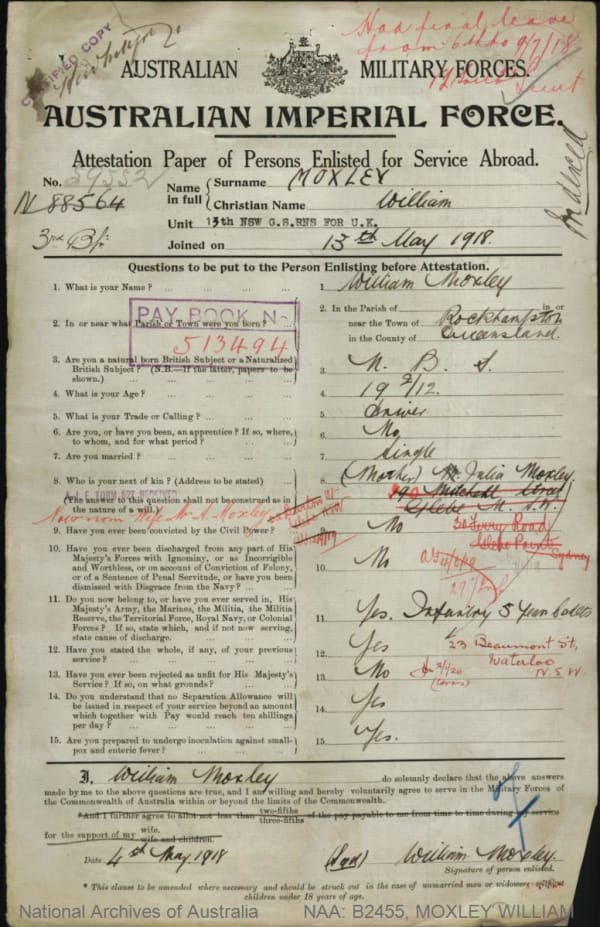 Had final leave
from 6th to 9/7/18
CERTIFIED COPY
AUSTRALIAN MILITARY FORCES.
AUSTRALIAN IMPERIAL FORCE.
Attestation Paper of Persons Enlisted for Service Abroad.
No. 59552
N 88564
Name in full { Surname MOXLEY
Christian Name William
Unit 13th NSW G.S.RNS FOR U.K.
Joined on 13th May 1918.
Indexed
Questions to be put to the Person Enlisting before Attestation.
1. What is your Name? ... 1. William Moxley
PAY BOOK No
513494
2. In or near what Parish or Town were you born? ... 2. In the Parish of in or
near the Town of Rockhampton
in the County of Queensland.
3. Are you a natural born British Subject or a Naturalized
British Subject? (N.B.—If the latter, papers to be
shown.) 3. N. B. S.
4. What is your Age? ... 4. 19 2/12.
5. What is your Trade or Calling? ... 5.
6. Are you, or have you been, an apprentice? If so, where,
to whom, and for what period? 6. No
7. Are you married? ... 7. Single
8. Who is your next of kin? (Address to be stated) 8. (Mother) Julia Moxley
Mitchell Street
Glebe N. S. W.
A.I.F. FORM NOT RECEIVED
(The answer to this question shall not be construed as in
the nature of a will.)
Now nom Wife Mrs A. Moxley
9. Have you ever been convicted by the Civil Power? 9. No
Ferry Road
Glebe Point
Sydney
10. Have you ever been discharged from any part of His
Majesty's Forces with Ignominy, or as Incorrigible
and Worthless, or on account of Conviction of Felony,
or of a Sentence of Penal Servitude, or have you been
dismissed with Disgrace from the Navy? ... 10. No
11. Do you now belong to, or have you ever served in, His
Majesty's Army, the Marines, the Militia, the Militia
Reserve, the Territorial Force, Royal Navy, or Colonial
Forces? If so, state which, and if not now serving,
state cause of discharge. 11. Yes. Infantry 5 Years Cadets
12. Have you stated the whole, if any, of your previous
service? 12. Yes
23 Beaumont St,
Waterloo
N.S.W.
13. Have you ever been rejected as unfit for His Majesty's
Service? If so, on what grounds? 13. No
14. Do you understand that no Separation Allowance will
be issued in respect of your service beyond an amount
which together with Pay would reach ten shillings
per day? 14. Yes
15. Are you prepared to undergo inoculation against small-
pox and enteric fever? 15. Yes.
I, William Moxley do solemnly declare that the above answers
made by me to the above questions are true, and I am willing and hereby voluntarily agree to serve in the Military Forces of
the Commonwealth of Australia within or beyond the limits of the Commonwealth.
*And I further agree to allot not less than two-fifths three-fifths of the pay payable to me from time to time during my service
for the support of my wife. wife and children.
Date 4th May 1918 (Sgd) William Moxley.
Signature of person enlisted.
* This clause to be amended where necessary and should be struck out in the case of unmarried men or widowers without
children under 18 years of age.
National Archives of Australia NAA: B2455, MOXLEY WILLIAM